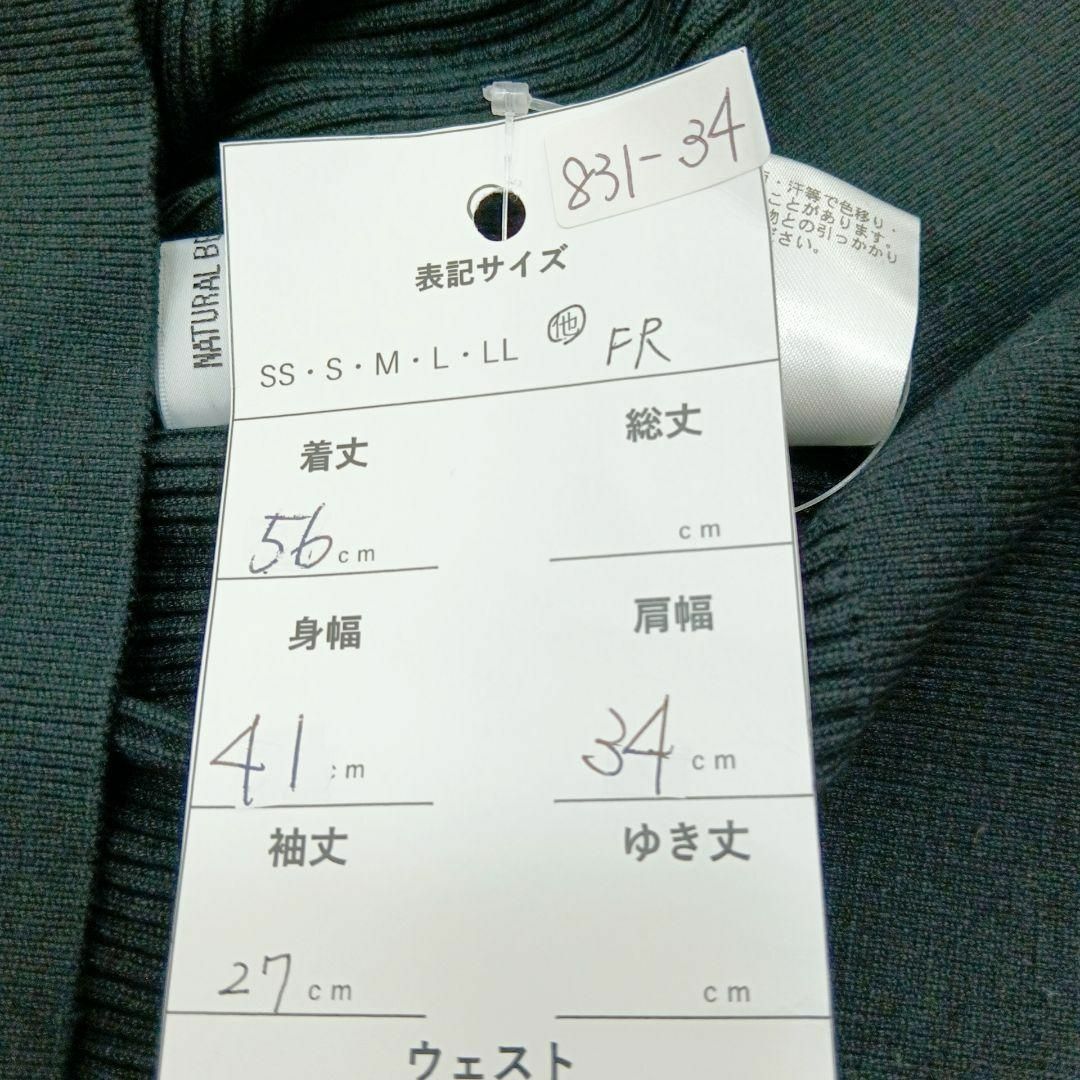 831-34
表記サイズ
SS・S・M・L・LL 他 FR
着丈 総丈
56 cm cm
身幅 肩幅
41 cm 34 cm
袖丈 ゆき丈
27 cm cm
ウェスト
NATURAL
・汗等で色移り・
ことがあります。
物との引っかかり
ださい。